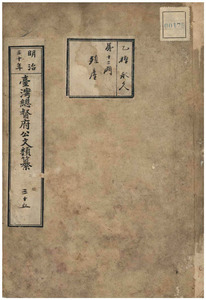 明治
三十年
臺灣總督府公文類纂
三十五
乙種永久
第十二門
殖產